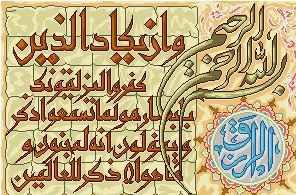 بسم الله الرحمن الرحيم
وان يكاد الذين
كفروا ليزلقونك
بابصارهم لما سمعوا الذكر
ويقولون انه لمجنون و
ما هو الا ذكر للعالمين